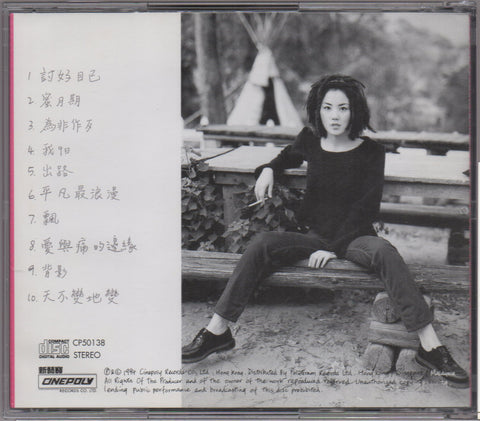 1 討好自己
2 蜜月期
3. 為非作歹
4. 我9日
5. 出路
6. 平凡最浪漫
7. 飄
8. 愛與痛的邊緣
9. 背影
10. 天不變地變
COMPACT
disc
DIGITAL AUDIO
CP50138
STEREO
新藝寶
CINEPOLY
RECORDS CO. LTD.
℗&© 1994 Cinepoly Records Co., Ltd., Hong Kong. Distributed By PolyGram Records Ltd. Hong Kong / Singapore / Malaysia
All Rights Of The Producer and of the owner of the work reproduced reserved. Unauthorized copying, hiring,
lending, public performance and broadcasting of this disc prohibited.